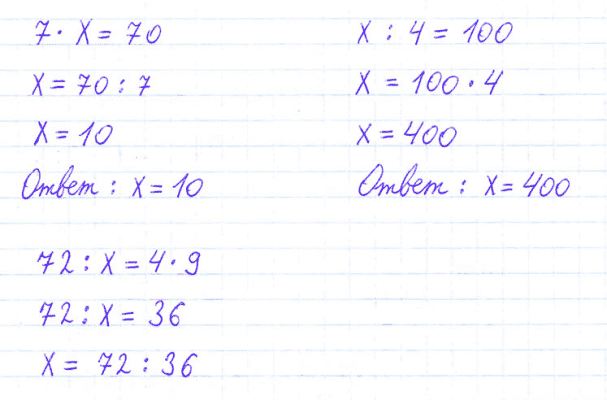 7 · x = 70
x = 70 : 7
x = 10
Ответ : x = 10
x : 4 = 100
x = 100 · 4
x = 400
Ответ : x = 400
72 : x = 4 · 9
72 : x = 36
x = 72 : 36